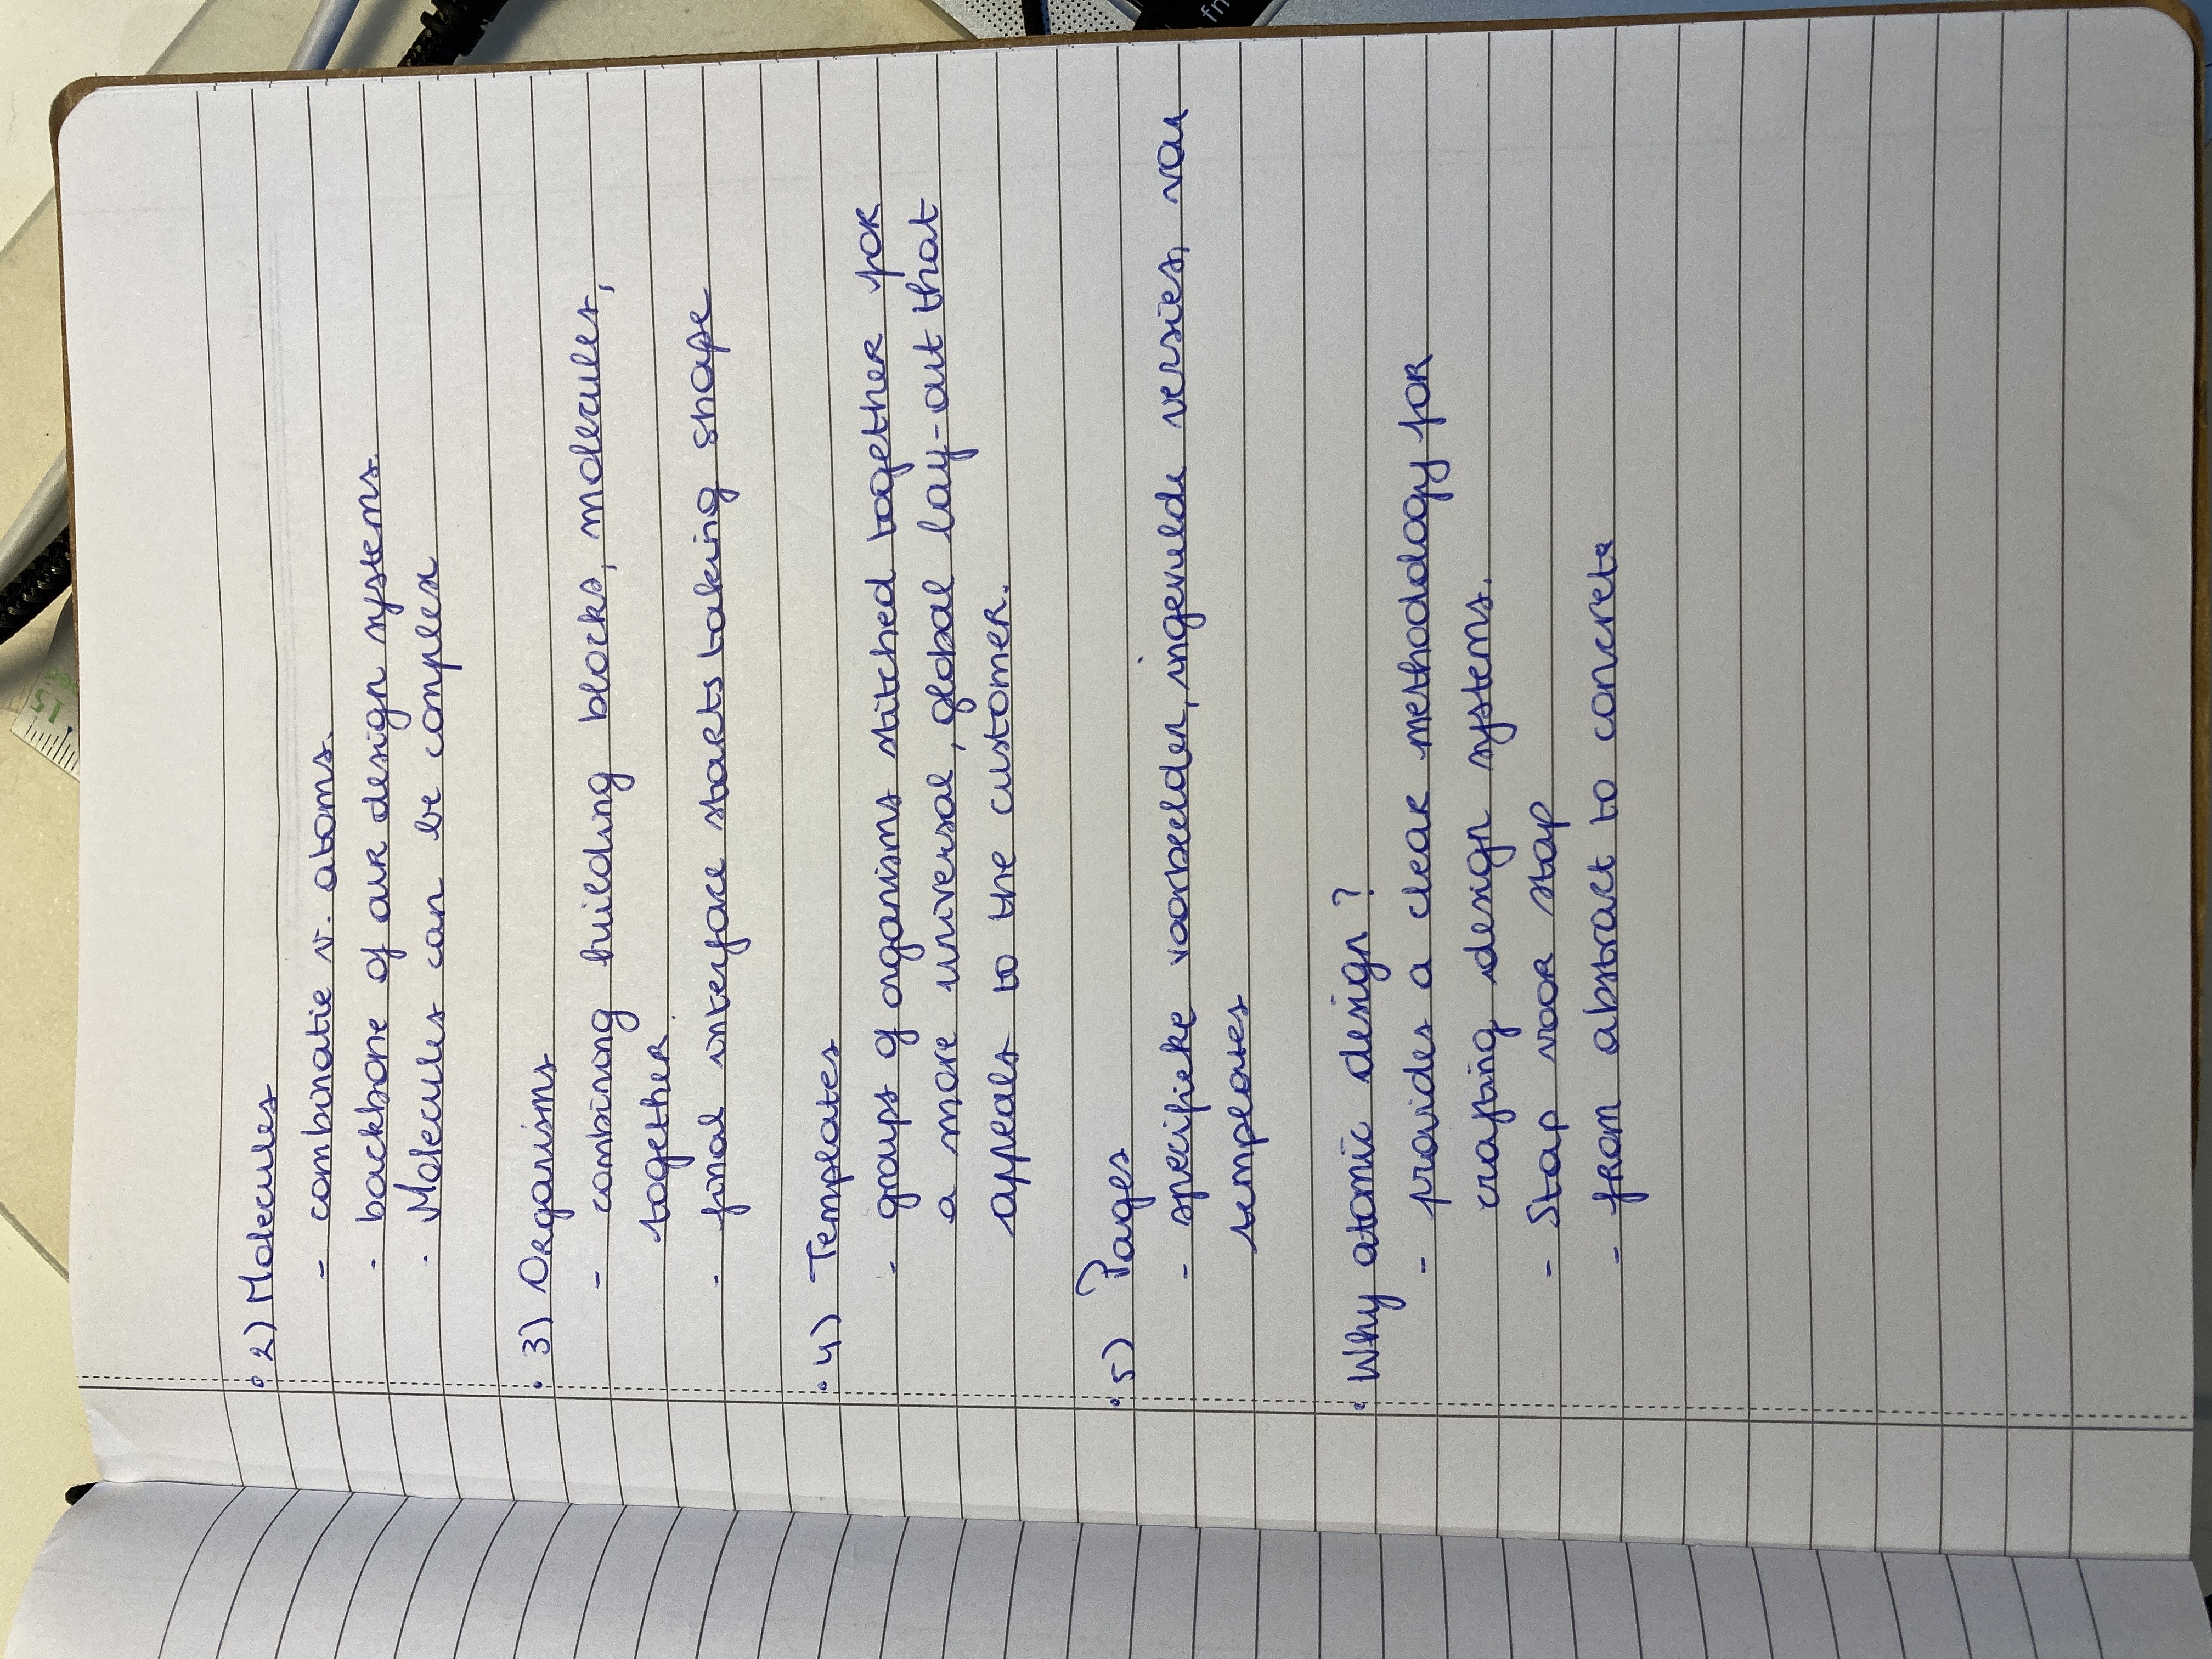 15
• 2) Molecules
- combinatie v. atoms.
- backbone of our design systems.
- Molecules can be complex
• 3) Organisms
- combining building blocks, molecules,
together.
- final interface starts taking shape
• 4) Templates
- groups of organisms stitched together for
a more universal, global lay-out that
appeals to the customer.
• 5) Pages
- specifieke voorbeelden, ingevulde versies, van
templates
• Why atomic design?
- provides a clear methodology for
crafting design systems.
- Stap voor stap
- from abstract to concrete
fn